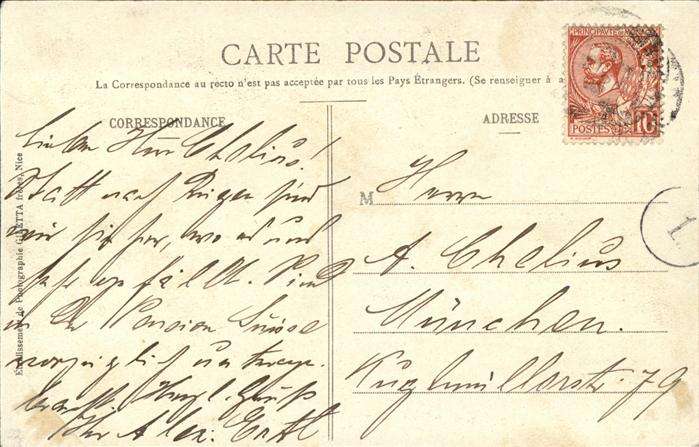 CARTE POSTALE
La Correspondance au recto n'est pas acceptée par tous les Pays Étrangers. (Se renseigner à
CORRESPONDANCE
ADRESSE
PRINCIPAUTÉ DE
POSTES 10
1
Lieber Herr Chelius!
Statt nach Rügen sind
wir hier, wo es uns
gefällt. Sind
in der Pension Suisse
vorzüglich unterge-
bracht. Herzl. Gruß
Ihr Alex. Ertl
M
Herrn
A. Chelius
München.
Kuglmüllerstr. 79
Etablissement de Photographie GILETTA frères, Nice